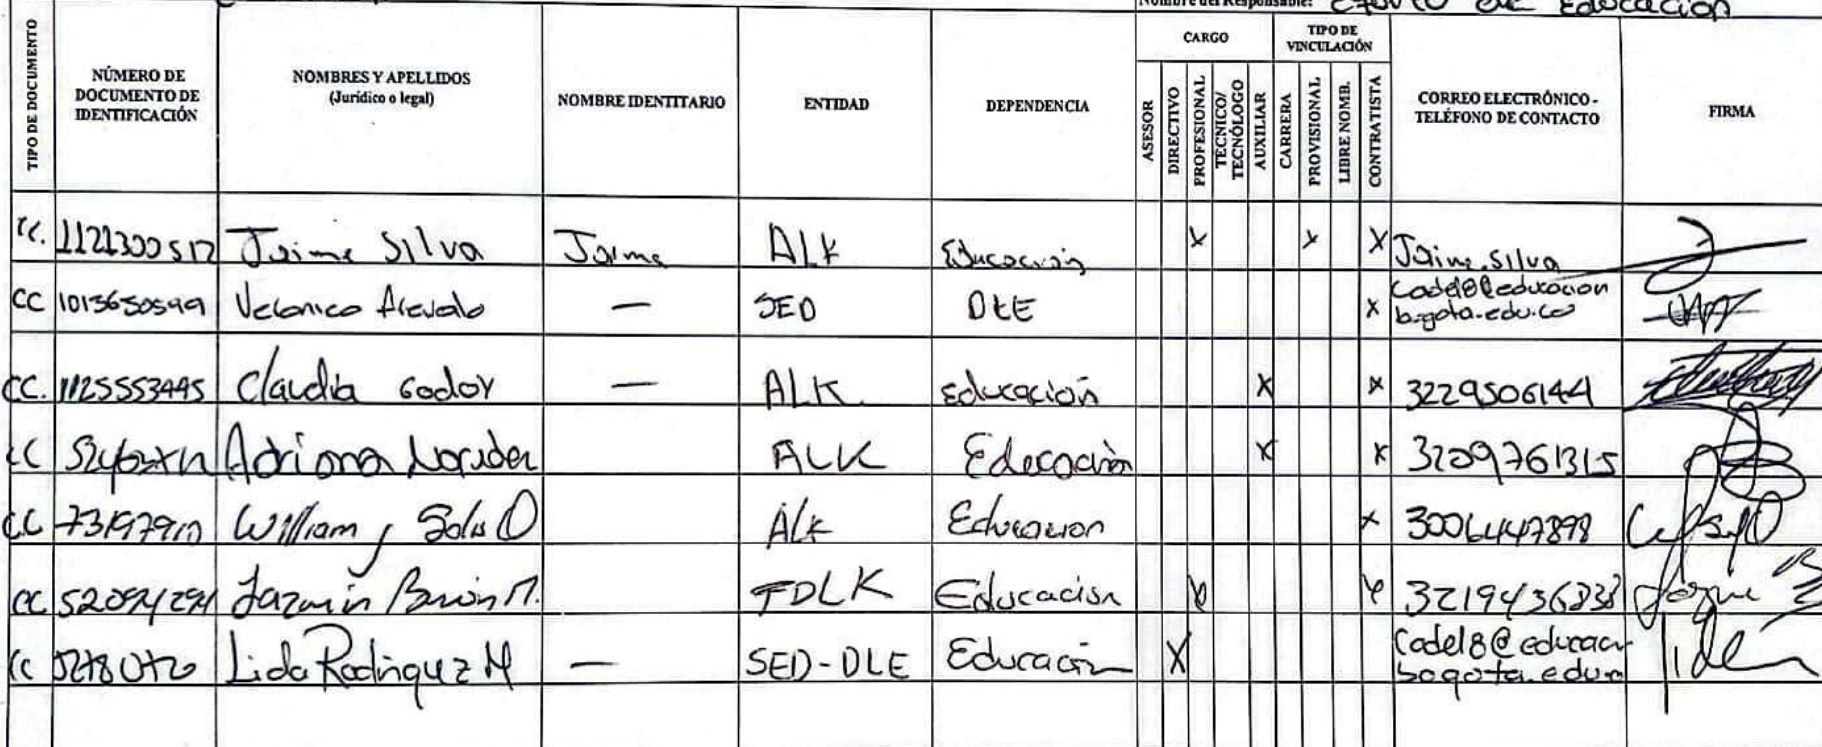 Nombre del Responsable: de Educación
TIPO DE DOCUMENTO
NÚMERO DE DOCUMENTO DE IDENTIFICACIÓN
NOMBRES Y APELLIDOS (Jurídico o legal)
NOMBRE IDENTITARIO
ENTIDAD
DEPENDENCIA
CARGO
ASESOR
DIRECTIVO
PROFESIONAL
TECNICO/ TECNÓLOGO
AUXILIAR
TIPO DE VINCULACIÓN
CARRERA
PROVISIONAL
LIBRE NOMB.
CONTRATISTA
CORREO ELECTRÓNICO - TELÉFONO DE CONTACTO
FIRMA
CC. Jaime Silva Jaime ALK Educación X X X Jaime.silva
CC 1013650599 Veronica Acevedo — SED DLE X Cadel18@educacion bogota.edu.co
CC. 1125553495 Claudia Godoy — ALK educación X X 3229506144
CC Adriana ALK Educación X X 3209761315
CC William J Solis O ALK Educacion X 3006447898
CC Jazmin FDLK Educación X X
CC Lida Rodriguez M — SED-DLE Educación X Cadel18@educacn bogota.edu